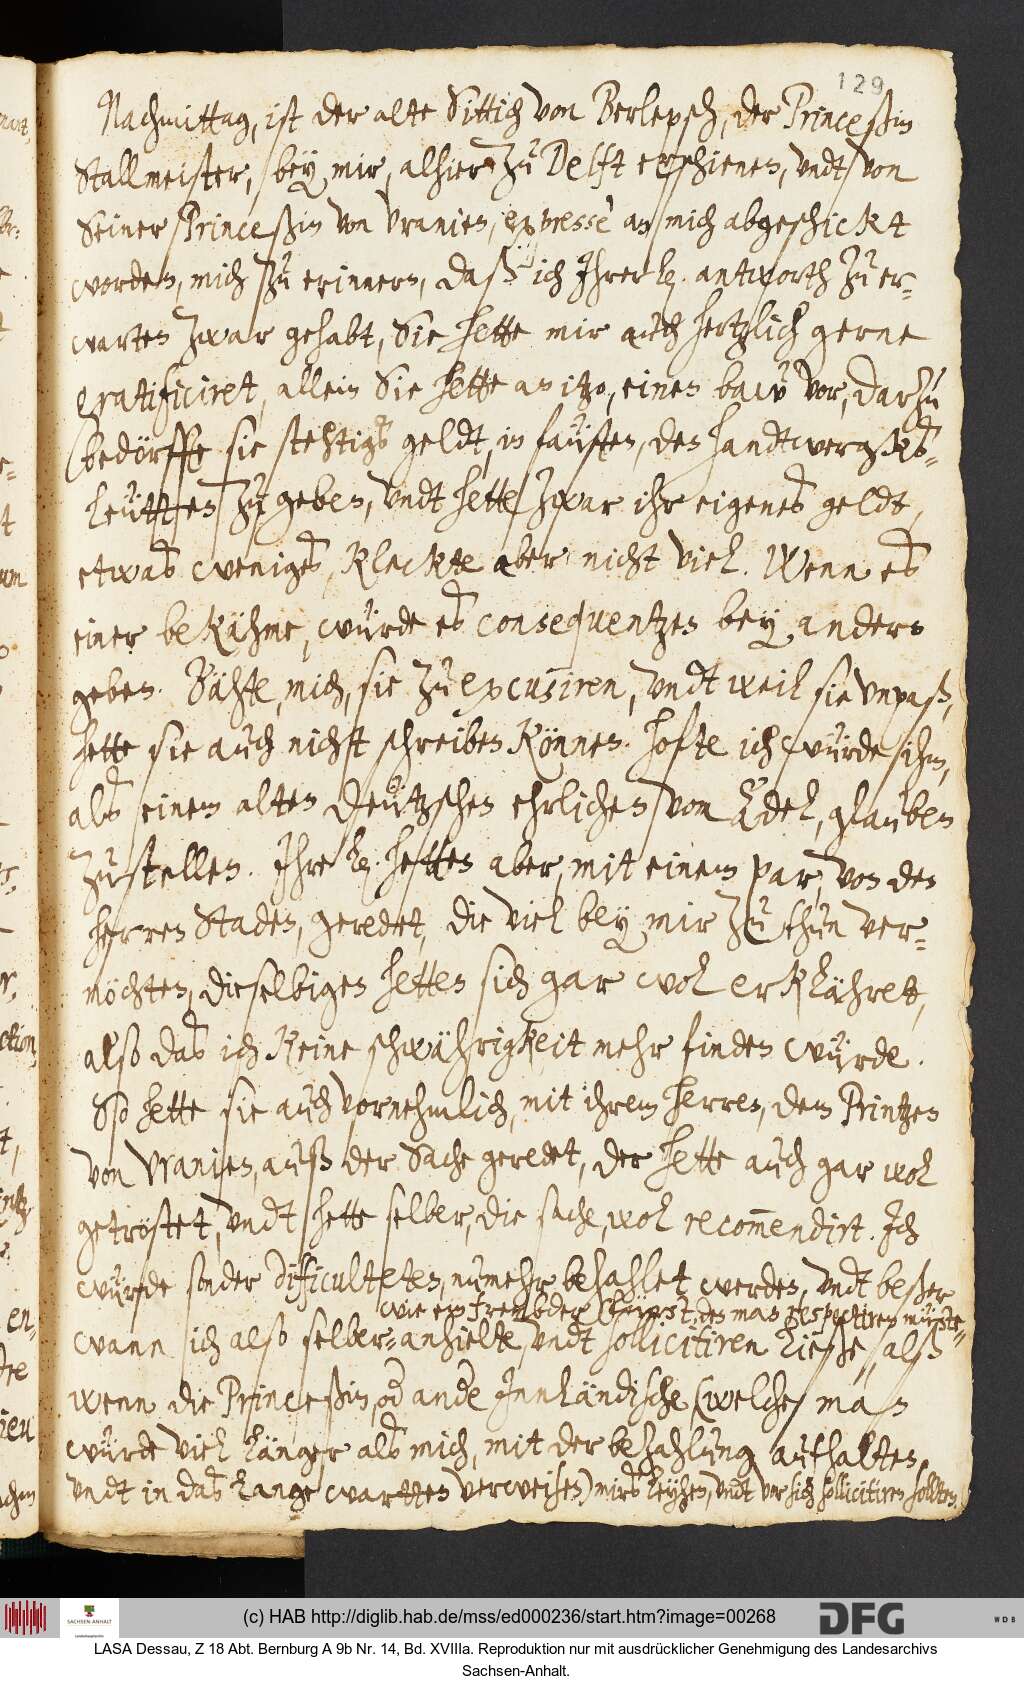 129
Nachmittag, ist der alte Sittich von Berlepsch, der Princeßin
Stallmeister, bey mir, alhier zu Delft erschienen, vndt von
Seiner Princeßin von Vranien, expressè an mich abgeschickt
worden, mich zu erinnern, daß ich Ihrer L. antworth zu er-
warten zwar gehabt, Sie hette mir auch hertzlich gerne
gratificiret, allein Sie hette an itzo, einen baw vor, darzu
bedörffe sie stehtigs geldt, in faüsten, den handtwergks-
leütten zu geben, vndt hette zwar ihr eigenes geldt,
etwas weniges, Kleckte aber nicht viel. Wenn es
einer bekähme, würde es consequentzen bey andern
geben. Bähte, mich, sie zu excusiren, vndt weil sie vnpaß,
hette sie auch nicht schreiben Können. hofte ich würde ihm,
als einem alten Deützschen ehrlichen von Adel, glauben
zustellen. Ihre L. hetten aber, mit einem par, von den
herren Staden, geredet, die viel bey mir zu thun ver-
möchten, dieselbigen hetten sich gar wol erklähret,
also das ich Keine schwährigkeit mehr finden würde.
So hette sie auch vornehmlich, mit ihrem herren, dem Printzen
von Vranien, auß der Sache geredet, der hette auch gar wol
getröstet, vndt hette selber, die sache, wol recom̅endirt. Ich
würde sonder dificulteten, numehr bezahlet werden, vndt beßer
wie ein frembder Fürst, den man respectiren müste-
wann ich also selber anhielte, vndt sollicitiren ließe, alß
wenn die Princeßin, od andͤe Innländische (welche man
würde viel länger, als mich, mit der bezahlung aufhalten,
vndt in das lange wartten verweisen) mirs leyhen, vndt vor sich sollicitiren solten
(c) HAB http://diglib.hab.de/mss/ed000236/start.htm?image=00268
SACHSEN-ANHALT
DFG
WDB
LASA Dessau, Z 18 Abt. Bernburg A 9b Nr. 14, Bd. XVIIIa. Reproduktion nur mit ausdrücklicher Genehmigung des Landesarchivs
Sachsen-Anhalt.